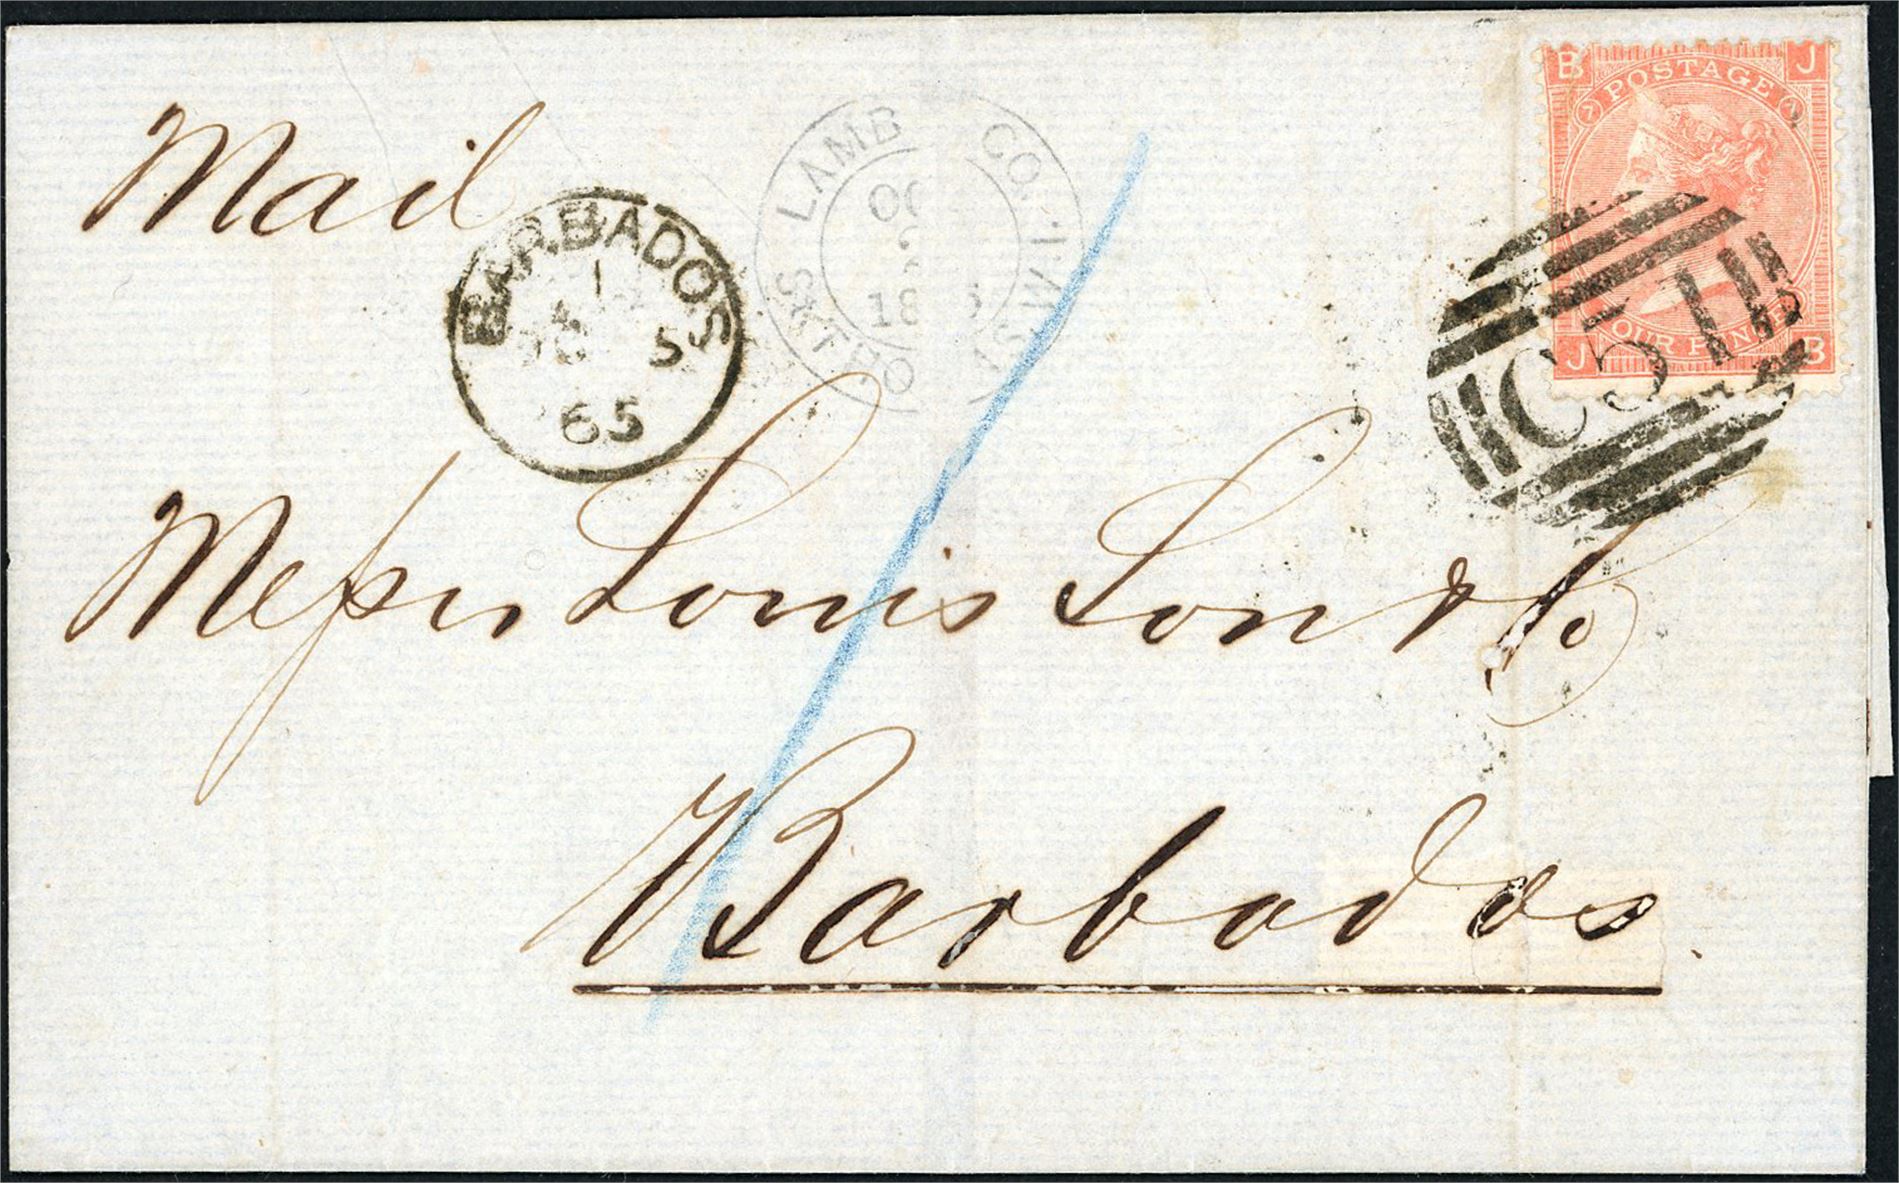 Mail
BARBADOS
5
65
LAMB & CO. ST. THOMAS W.I.
OC
18 5
B J
POSTAGE
FOUR PENCE
J B
C51
Messrs Louis Son & Co
Barbados.